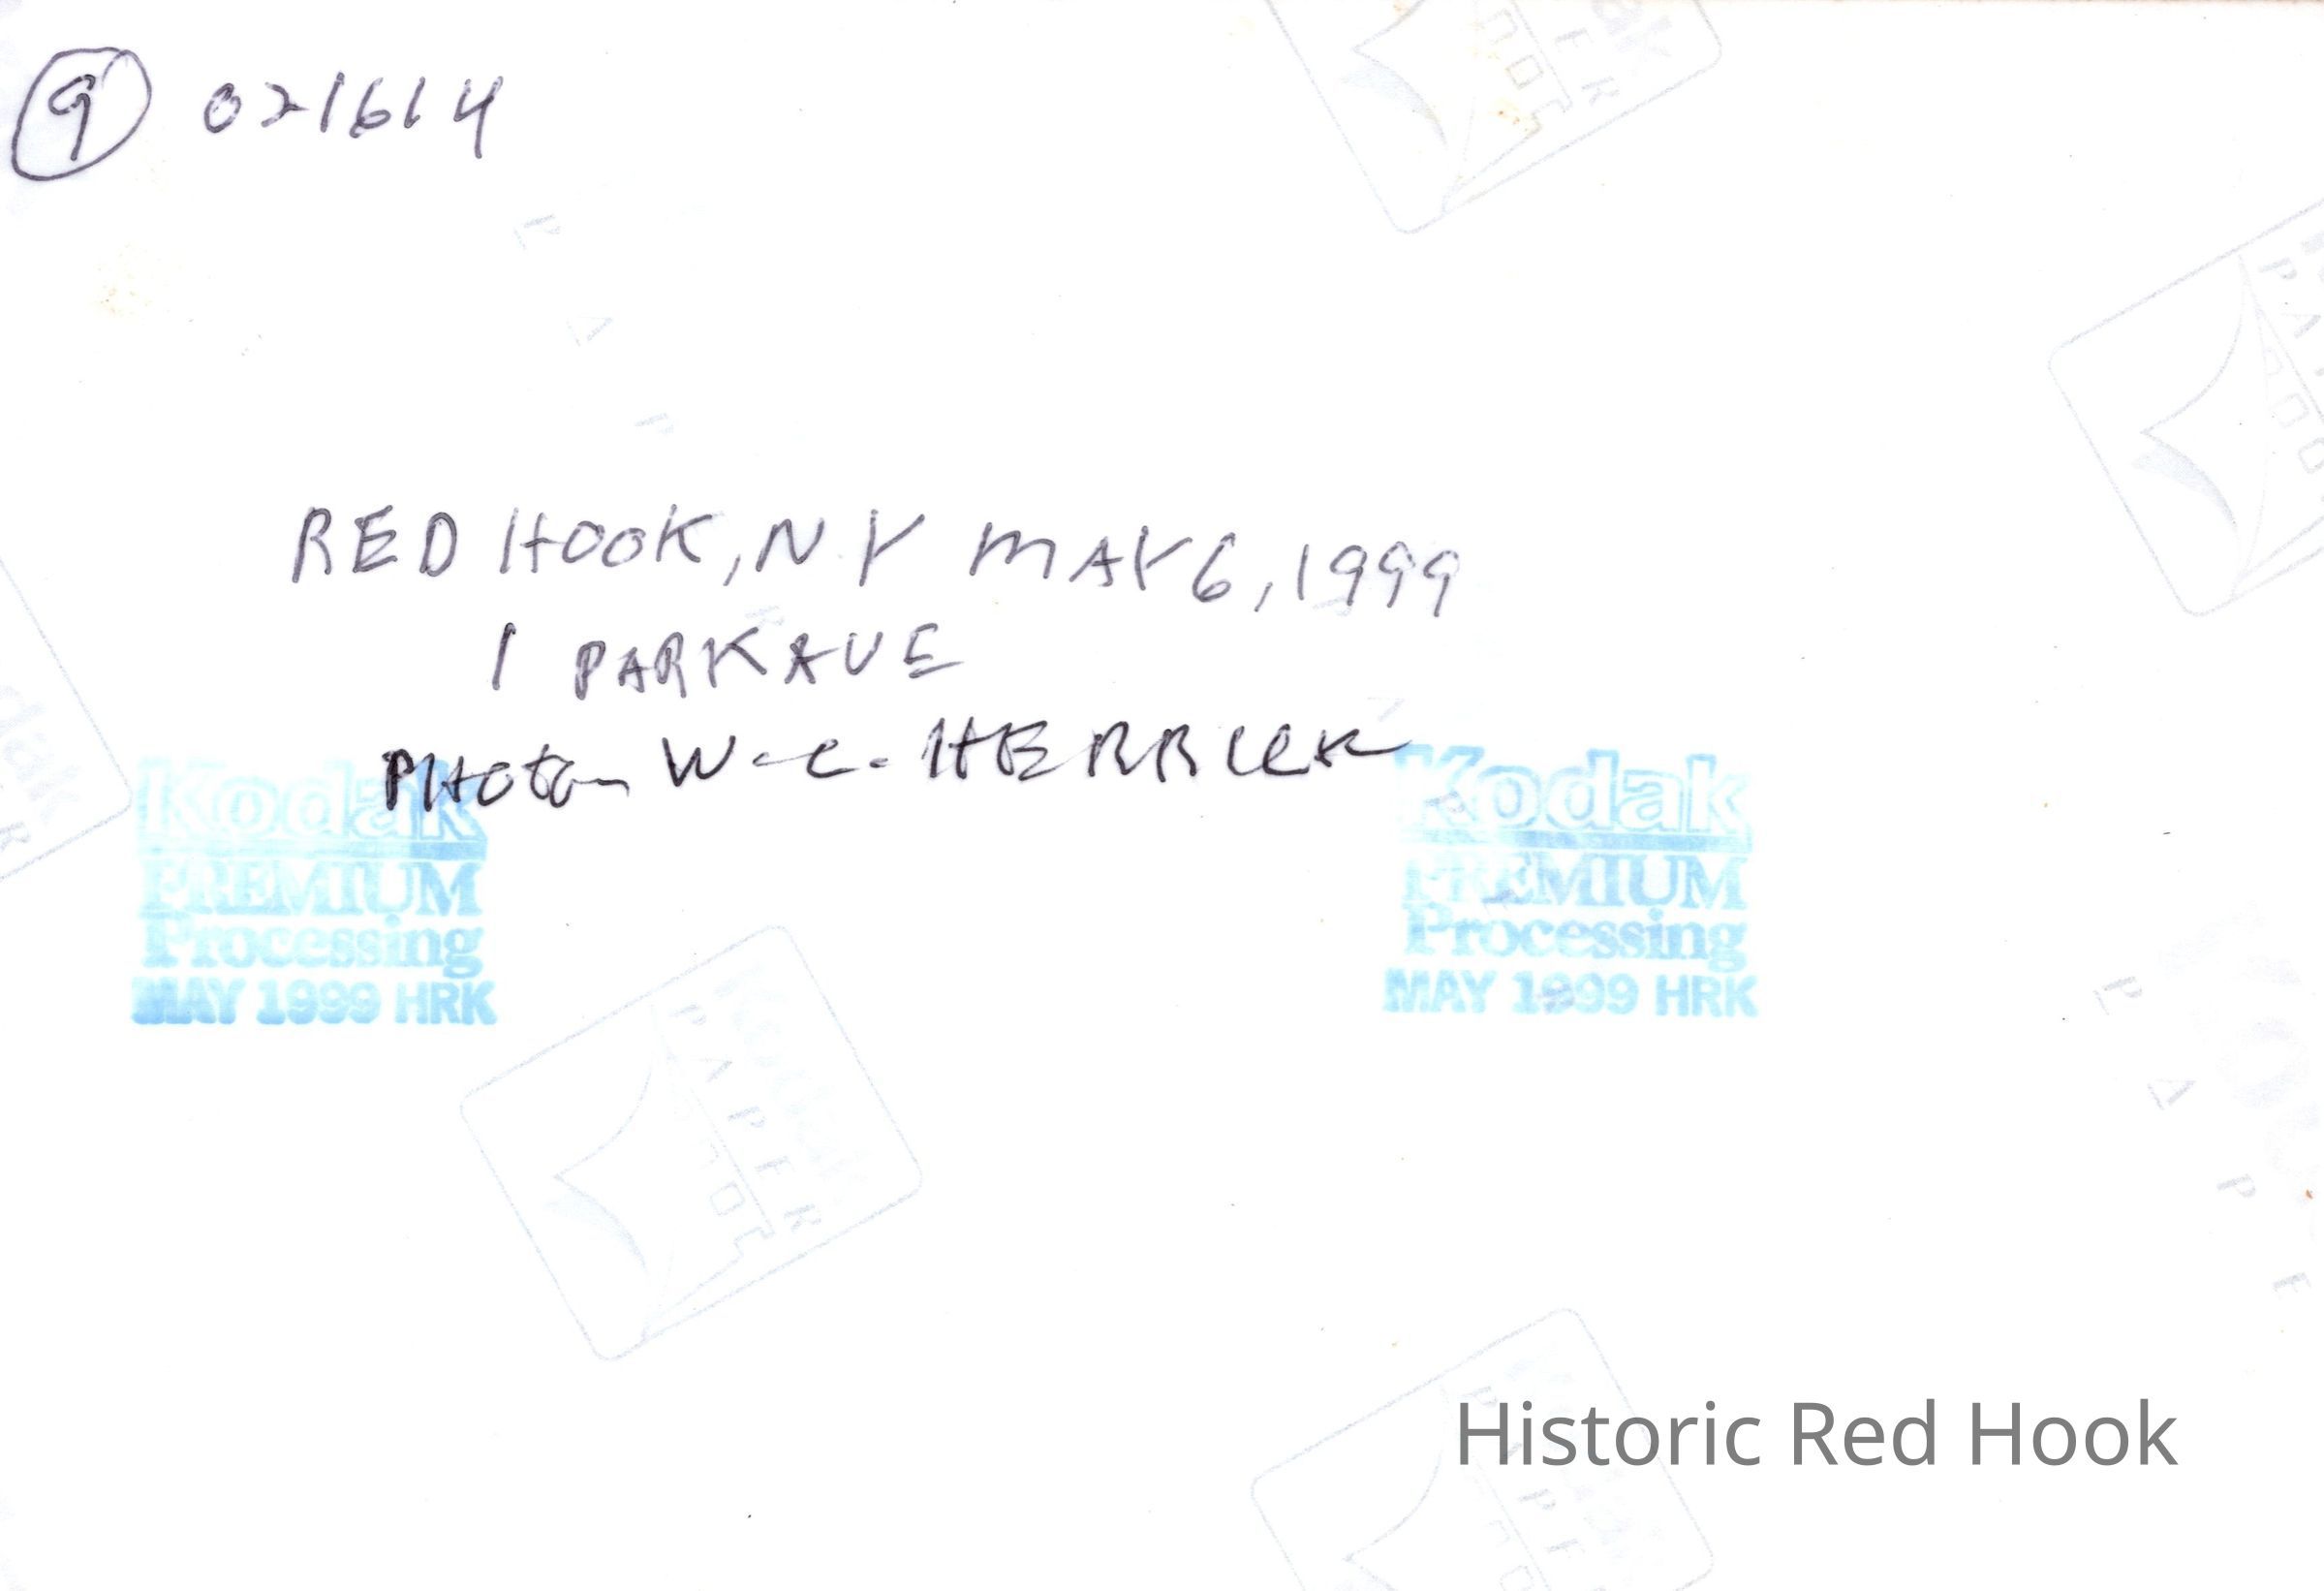 9 021614
RED HOOK, NY MAY 6, 1999
1 PARK AVE
PHOTO- W-C- HERRICK
Kodak
PREMIUM
Processing
MAY 1999 HRK
Kodak
PREMIUM
Processing
MAY 1999 HRK
Kodak
PAPER
Historic Red Hook